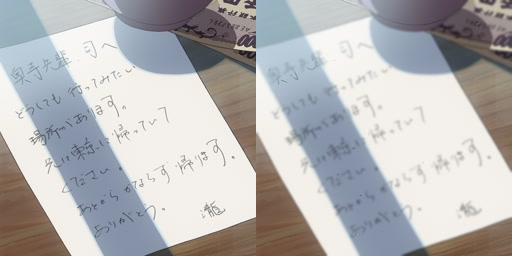 奥寺先輩、司へ
どうしても行ってみたい
場所があります。
先に東京に帰ってい7
ください。
あとからかならず帰ります。
ありがとう。
瀧
奥寺先輩、司へ
どうしても行ってみたい
場所があります。
先に東京に帰ってい7
ください。
あとからかならず帰ります。
ありがとう。
瀧